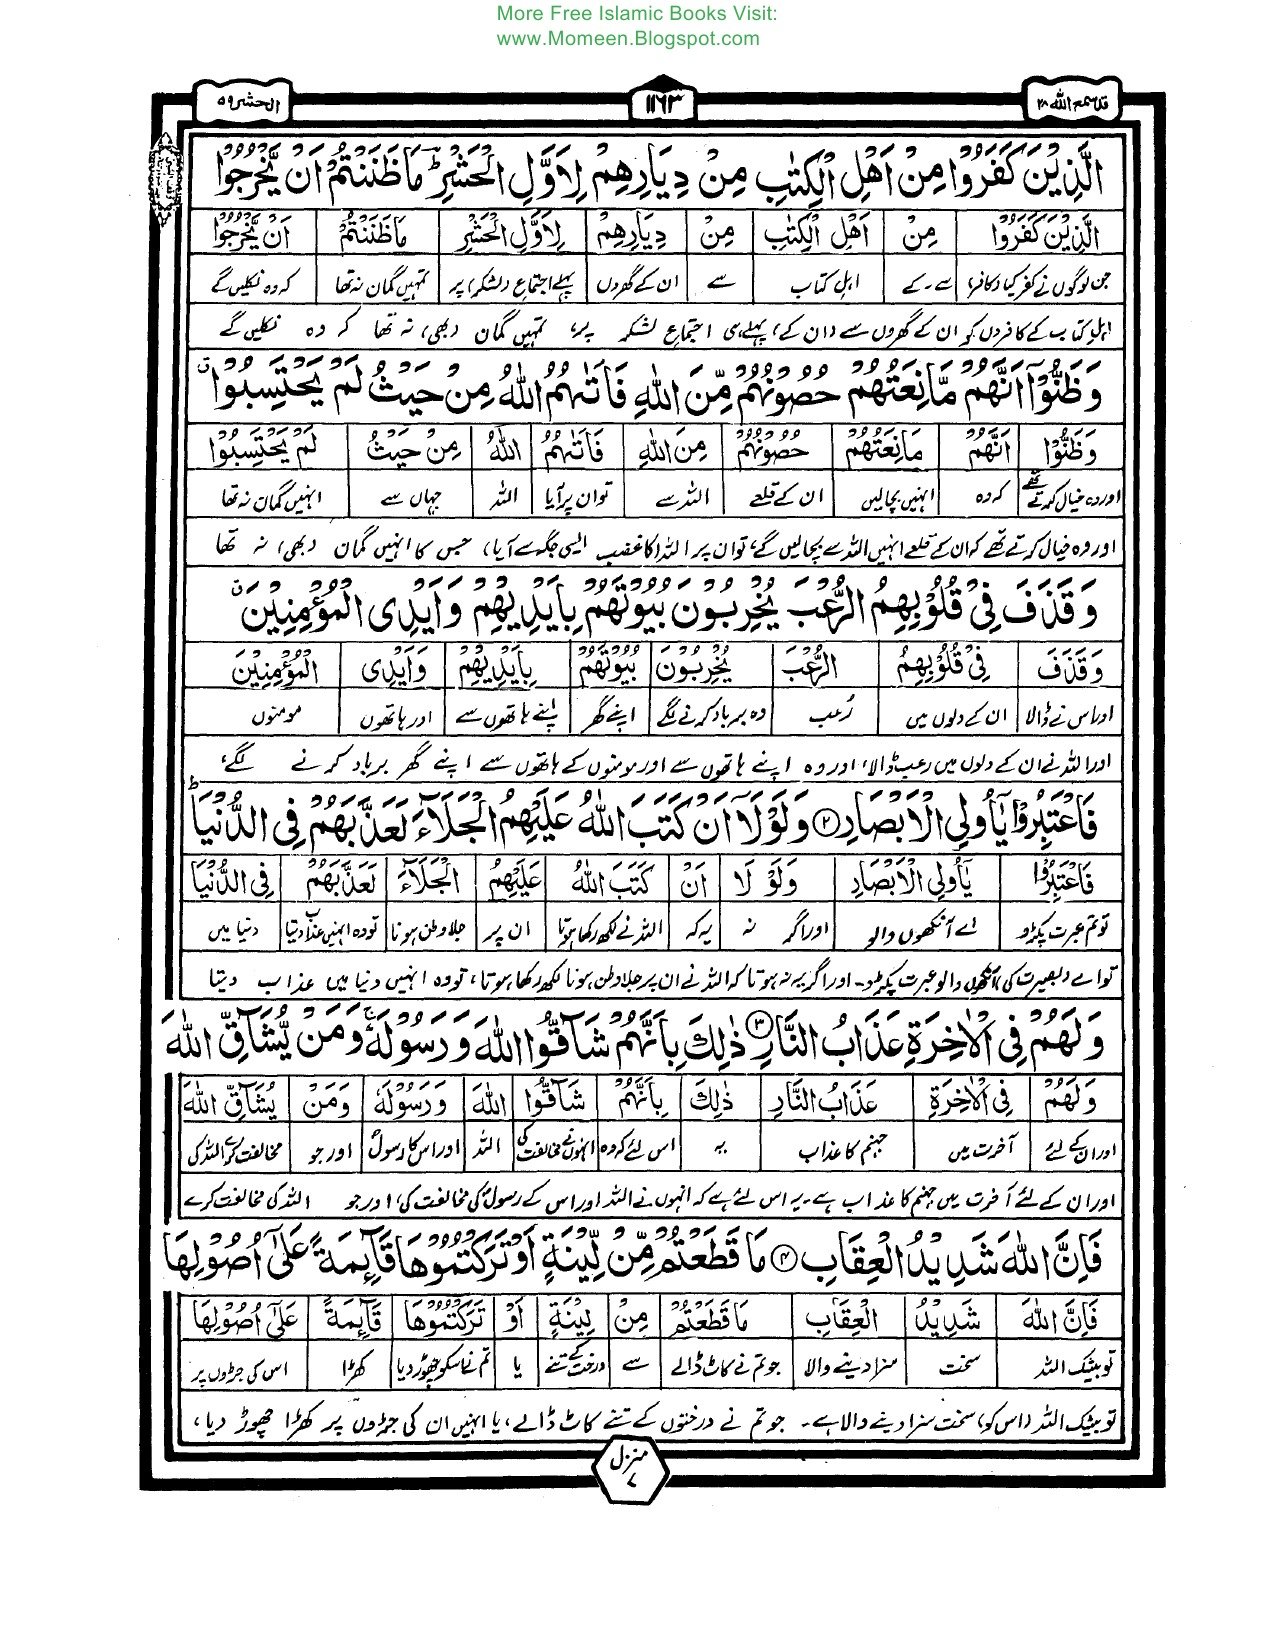 More Free Islamic Books Visit:
www.Momeen.Blogspot.com
قد سمع الله ۲۸
۱۱۶۳
الحشر ۵۹
الَّذِيْنَ كَفَرُوْا مِنْ اَهْلِ الْكِتٰبِ مِنْ دِيَارِهِمْ لِاَوَّلِ الْحَشْرِ ؕ مَا ظَنَنْتُمْ اَنْ يَّخْرُجُوْا
الَّذِيْنَ كَفَرُوْا مِنْ اَهْلِ الْكِتٰبِ مِنْ دِيَارِهِمْ لِاَوَّلِ الْحَشْرِ مَا ظَنَنْتُمْ اَنْ يَّخْرُجُوْا
جن لوگوں نے کفر کیا (کافر) سے ۔ کے اہل کتاب سے ان کے گھروں پہلے اجتماع (لشکر) پر تمہیں گمان نہ تھا کہ وہ نکلیں گے
اہل کتاب کے کافروں کو ان کے گھروں سے (ان کے) پہلے ہی اجتماع لشکر پر، تمہیں گمان (بھی) نہ تھا کہ وہ نکلیں گے
وَظَنُّوْۤا اَنَّهُمْ مَّانِعَتُهُمْ حُصُوْنُهُمْ مِّنَ اللّٰهِ فَاَتٰىهُمُ اللّٰهُ مِنْ حَيْثُ لَمْ يَحْتَسِبُوْا ۗ
وَظَنُّوْا اَنَّهُمْ مَانِعَتُهُمْ حُصُوْنُهُمْ مِنَ اللّٰهِ فَاَتٰىهُمُ اللّٰهُ مِنْ حَيْثُ لَمْ يَحْتَسِبُوْا
اور وہ خیال کرتے تھے کہ وہ انہیں بچالیں ان کے قلعے اللہ سے تو ان پر آیا اللہ جہاں سے انہیں گمان نہ تھا
اور وہ خیال کرتے تھے کہ ان کے قلعے انہیں اللہ سے بچالیں گے، تو ان پر اللہ (کا غضب ایسی جگہ سے آیا) جس کا انہیں گمان (بھی) نہ تھا
وَقَذَفَ فِيْ قُلُوْبِهِمُ الرُّعْبَ يُخْرِبُوْنَ بُيُوْتَهُمْ بِاَيْدِيْهِمْ وَاَيْدِى الْمُؤْمِنِيْنَ ۗ
وَقَذَفَ فِيْ قُلُوْبِهِمُ الرُّعْبَ يُخْرِبُوْنَ بُيُوْتَهُمْ بِاَيْدِيْهِمْ وَاَيْدِى الْمُؤْمِنِيْنَ
اور اس نے ڈالا ان کے دلوں میں رُعب وہ برباد کرنے لگے اپنے گھر اپنے ہاتھوں سے اور ہاتھوں مومنوں
اور اللہ نے ان کے دلوں میں رعب ڈالا، اور وہ اپنے ہاتھوں سے اور مومنوں کے ہاتھوں سے اپنے گھر برباد کرنے لگے،
فَاعْتَبِرُوْا يٰۤاُولِي الْاَبْصَارِ ﴿۲﴾ وَلَوْلَاۤ اَنْ كَتَبَ اللّٰهُ عَلَيْهِمُ الْجَلَآءَ لَعَذَّبَهُمْ فِى الدُّنْيَا ؕ
فَاعْتَبِرُوْا يٰۤاُولِي الْاَبْصَارِ وَلَوْ لَا اَنْ كَتَبَ اللّٰهُ عَلَيْهِمُ الْجَلَآءَ لَعَذَّبَهُمْ فِى الدُّنْيَا
تو تم عبرت پکڑو اے آنکھوں والو اور اگر نہ یہ کہ اللہ نے لکھ رکھا ہوتا ان پر جلا وطن ہونا تو وہ انہیں عذاب دیتا دنیا میں
تو اے (بصیرت کی) آنکھوں والو عبرت پکڑو۔ اور اگر یہ نہ ہوتا کہ اللہ نے ان پر جلا وطن ہونا لکھ رکھا ہوتا، تو وہ انہیں دنیا میں عذاب دیتا
وَلَهُمْ فِى الْاٰخِرَةِ عَذَابُ النَّارِ ﴿۳﴾ ذٰلِكَ بِاَنَّهُمْ شَآقُّوا اللّٰهَ وَرَسُوْلَهٗ ۚ وَمَنْ يُّشَآقِّ اللّٰهَ
وَلَهُمْ فِى الْاٰخِرَةِ عَذَابُ النَّارِ ذٰلِكَ بِاَنَّهُمْ شَآقُّوا اللّٰهَ وَرَسُوْلَهٗ وَمَنْ يُشَآقِّ اللّٰهَ
اور ان کے لئے آخرت میں جہنم کا عذاب یہ اس لئے کہ وہ انہوں نے مخالفت کی اللہ اور اس کا رسولؐ اور جو مخالفت کرے اللہ کی
اور ان کے لئے آخرت میں جہنم کا عذاب ہے۔ یہ اس لئے ہے کہ انہوں نے اللہ اور اس کے رسولؐ کی مخالفت کی، اور جو اللہ کی مخالفت کرے
فَاِنَّ اللّٰهَ شَدِيْدُ الْعِقَابِ ﴿۴﴾ مَا قَطَعْتُمْ مِّنْ لِّيْنَةٍ اَوْ تَرَكْتُمُوْهَا قَآئِمَةً عَلٰۤى اُصُوْلِهَا
فَاِنَّ اللّٰهَ شَدِيْدُ الْعِقَابِ مَا قَطَعْتُمْ مِنْ لِيْنَةٍ اَوْ تَرَكْتُمُوْهَا قَآئِمَةً عَلٰۤى اُصُوْلِهَا
تو بیشک اللہ سخت سزا دینے والا جو تم نے کاٹ ڈالے سے درخت کے تنے یا تم نے اس کو چھوڑ دیا کھڑا اس کی جڑوں پر
تو بیشک اللہ (اس کو) سخت سزا دینے والا ہے۔ جو تم نے درختوں کے تنے کاٹ ڈالے، یا انہیں ان کی جڑوں پر کھڑا چھوڑ دیا،
منزل ۷